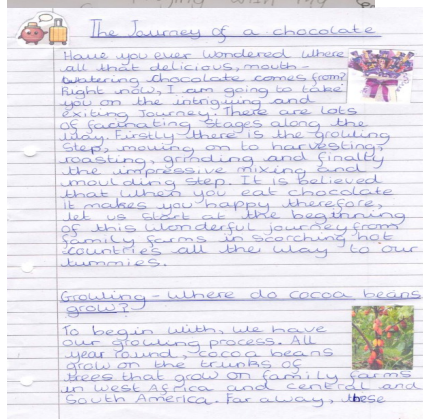 The Journey of a chocolate
Have you ever wondered where
all that delicious, mouth-
watering chocolate comes from?
Right now, I am going to take
you on the intriguing and
exiting Journey. There are lots
of facinating stages along the
way. Firstly there is the growing
step, moving on to harvesting,
roasting, grinding and finally
the impressive mixing and
moulding step. It is believed
that when you eat chocolate
it makes you happy therefore,
let us start at the beginning
of this wonderful journey from
family farms in scorching hot
countries all the way to our
tummies.
Growing - Where do cocoa beans
grow?
To begin with, we have
our growing process. All
year round, cocoa beans
grow on the trunks of
trees that grow on family farms
in West Africa and central and
South America. Far away, these